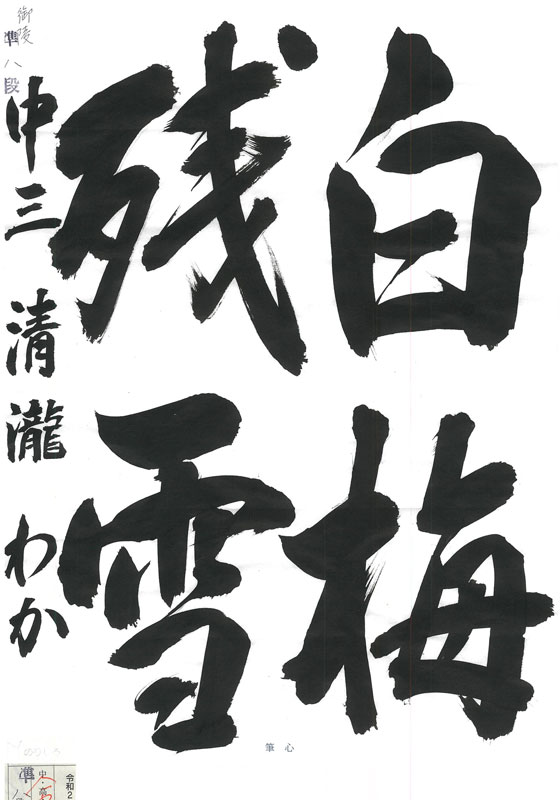 白梅
残雪
御陵
準八段
中三 清瀧 わか
心筆
令和2
中
準